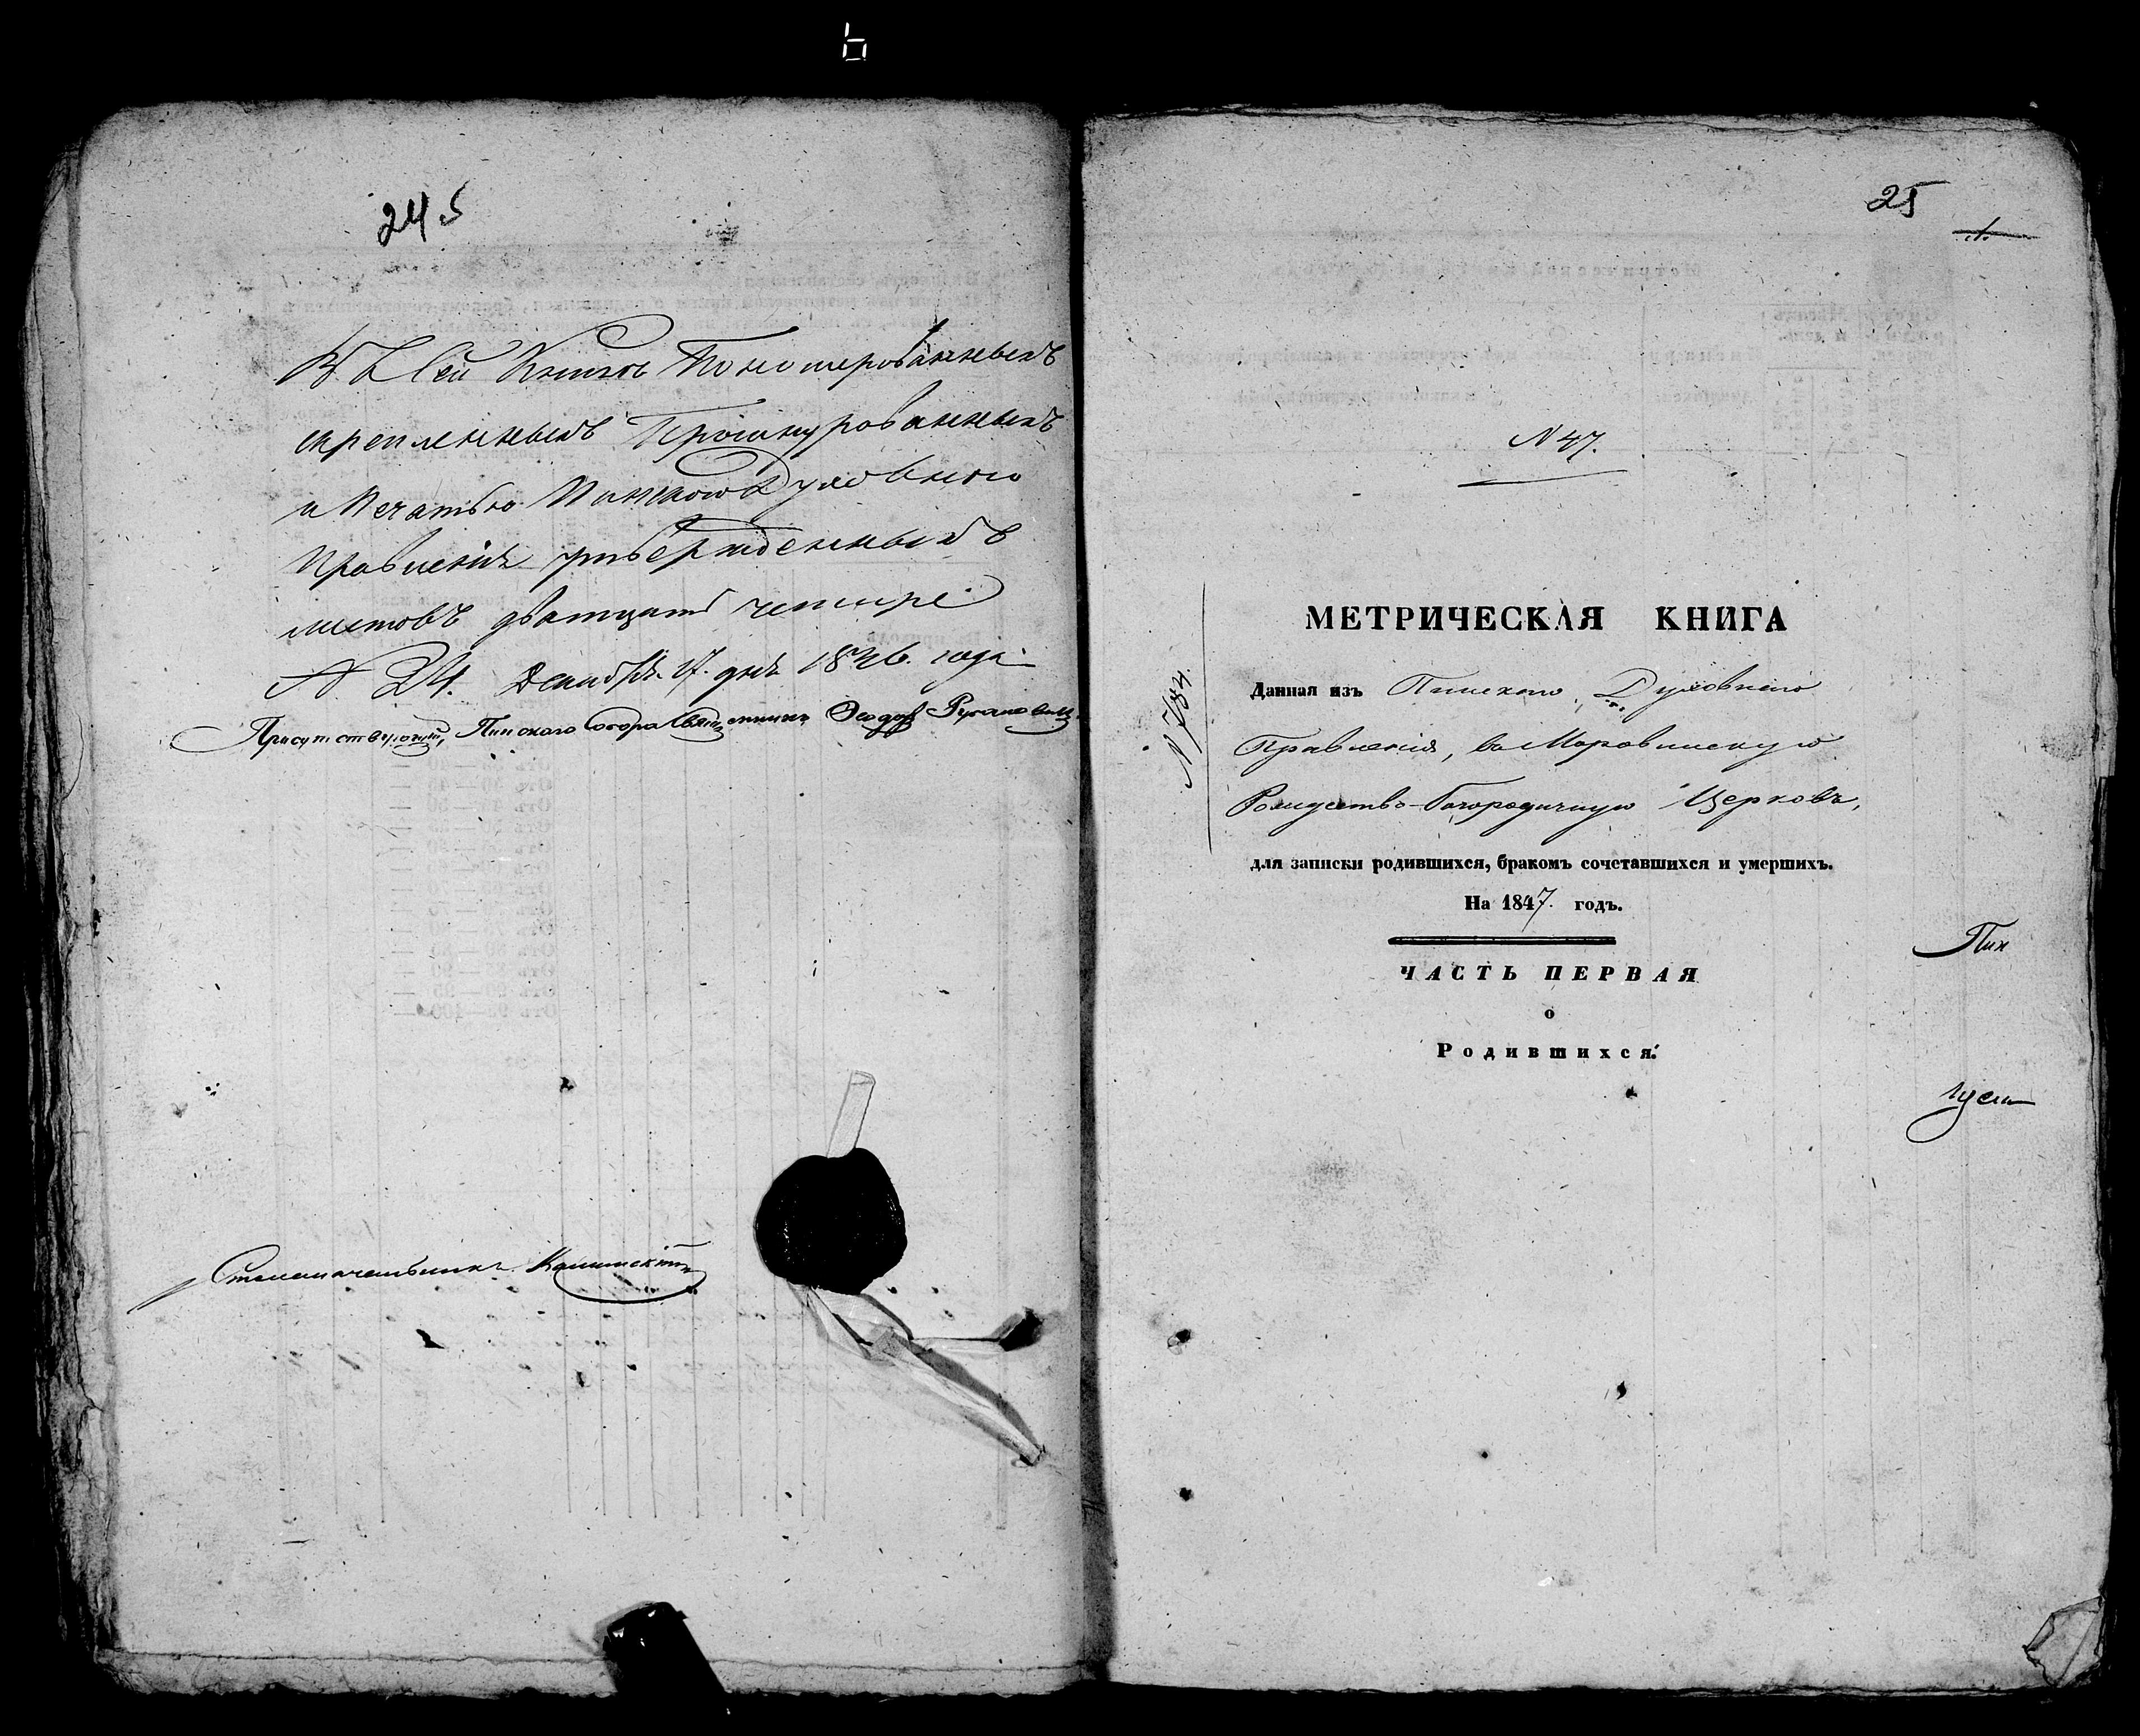 6
24 5
Въ Сей Книгѣ Пономерованныхъ
скрепленныхъ Прошнурованныхъ
и Печатью Пинского Духовного
Правленія утвержденныхъ
листовъ дватцать четыре
N 24. Декабря 17. дня 1846. года
Присутствующій, Пинского Собора Священникъ Ѳеодоръ
Столоначальникъ
25
1.
N 47.
N 784.
МЕТРИЧЕСКАЯ КНИГА
Данная изъ Пинскаго Духовнаго
Правленія, во Моровинскую
Рождество-Богородичную Церковь,
для записки родившихся, бракомъ сочетавшихся и умершихъ.
На 1847. годъ.
ЧАСТЬ ПЕРВАЯ
о
Родившихся.
Пин